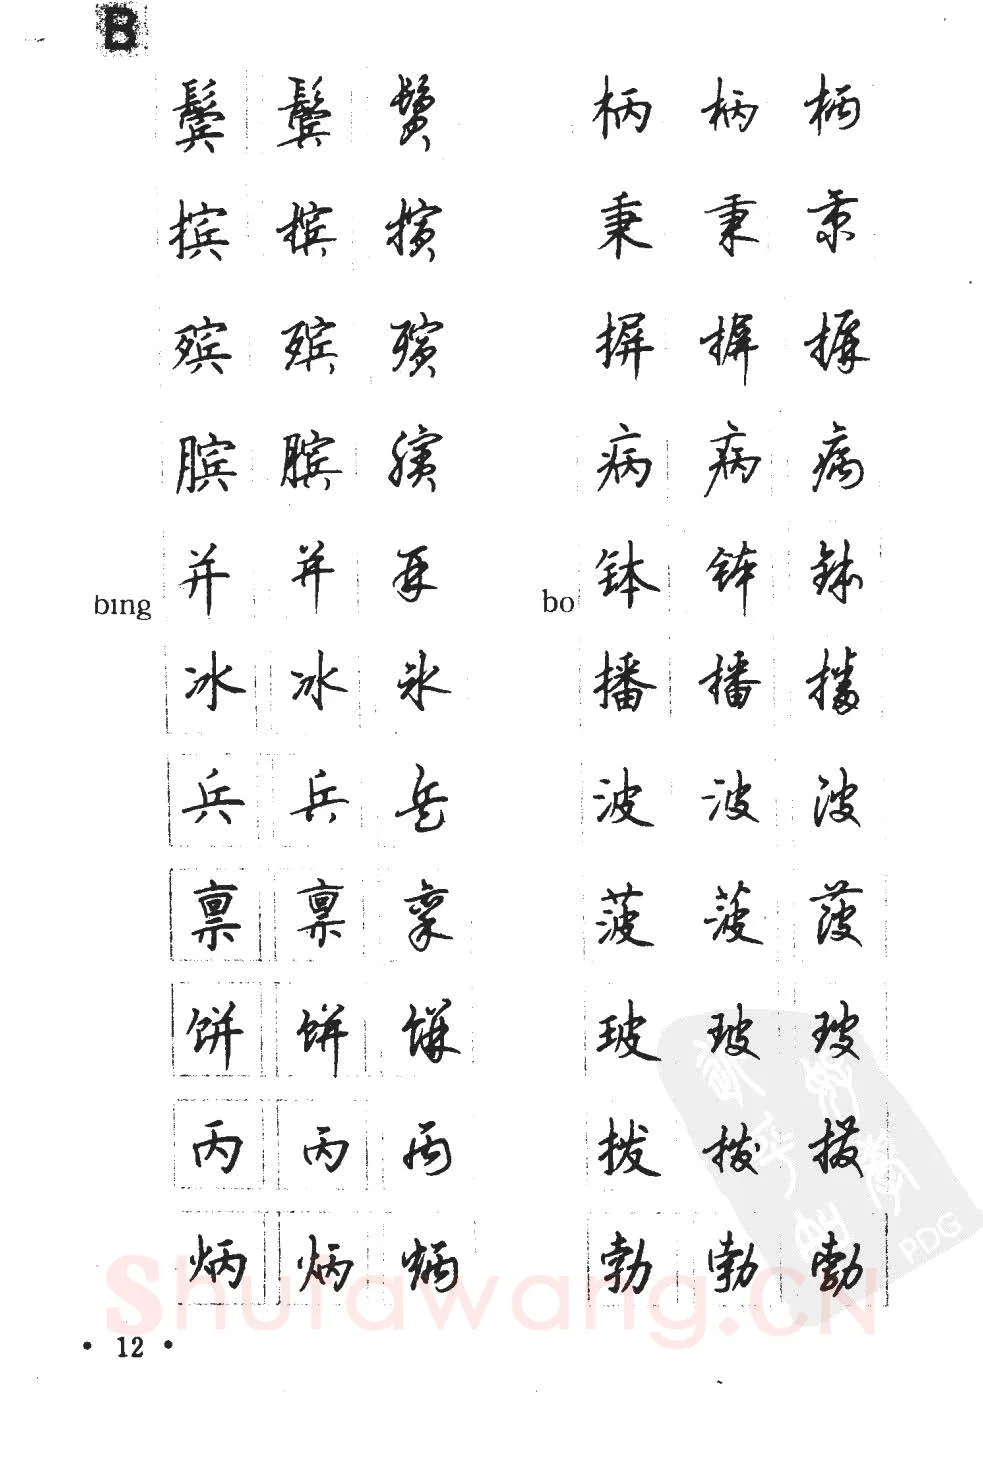 B
鬓 鬓 鬓
摈 摈 摈
殡 殡 殡
膑 膑 膑
bıng 并 并 并
冰 冰 冰
兵 兵 兵
禀 禀 禀
饼 饼 饼
丙 丙 丙
炳 炳 炳
柄 柄 柄
秉 秉 秉
摒 摒 摒
病 病 病
bo 钵 钵 钵
播 播 播
波 波 波
菠 菠 菠
玻 玻 玻
拨 拨 拨
勃 勃 勃
• 12 •
Shufawang.CN
PDG